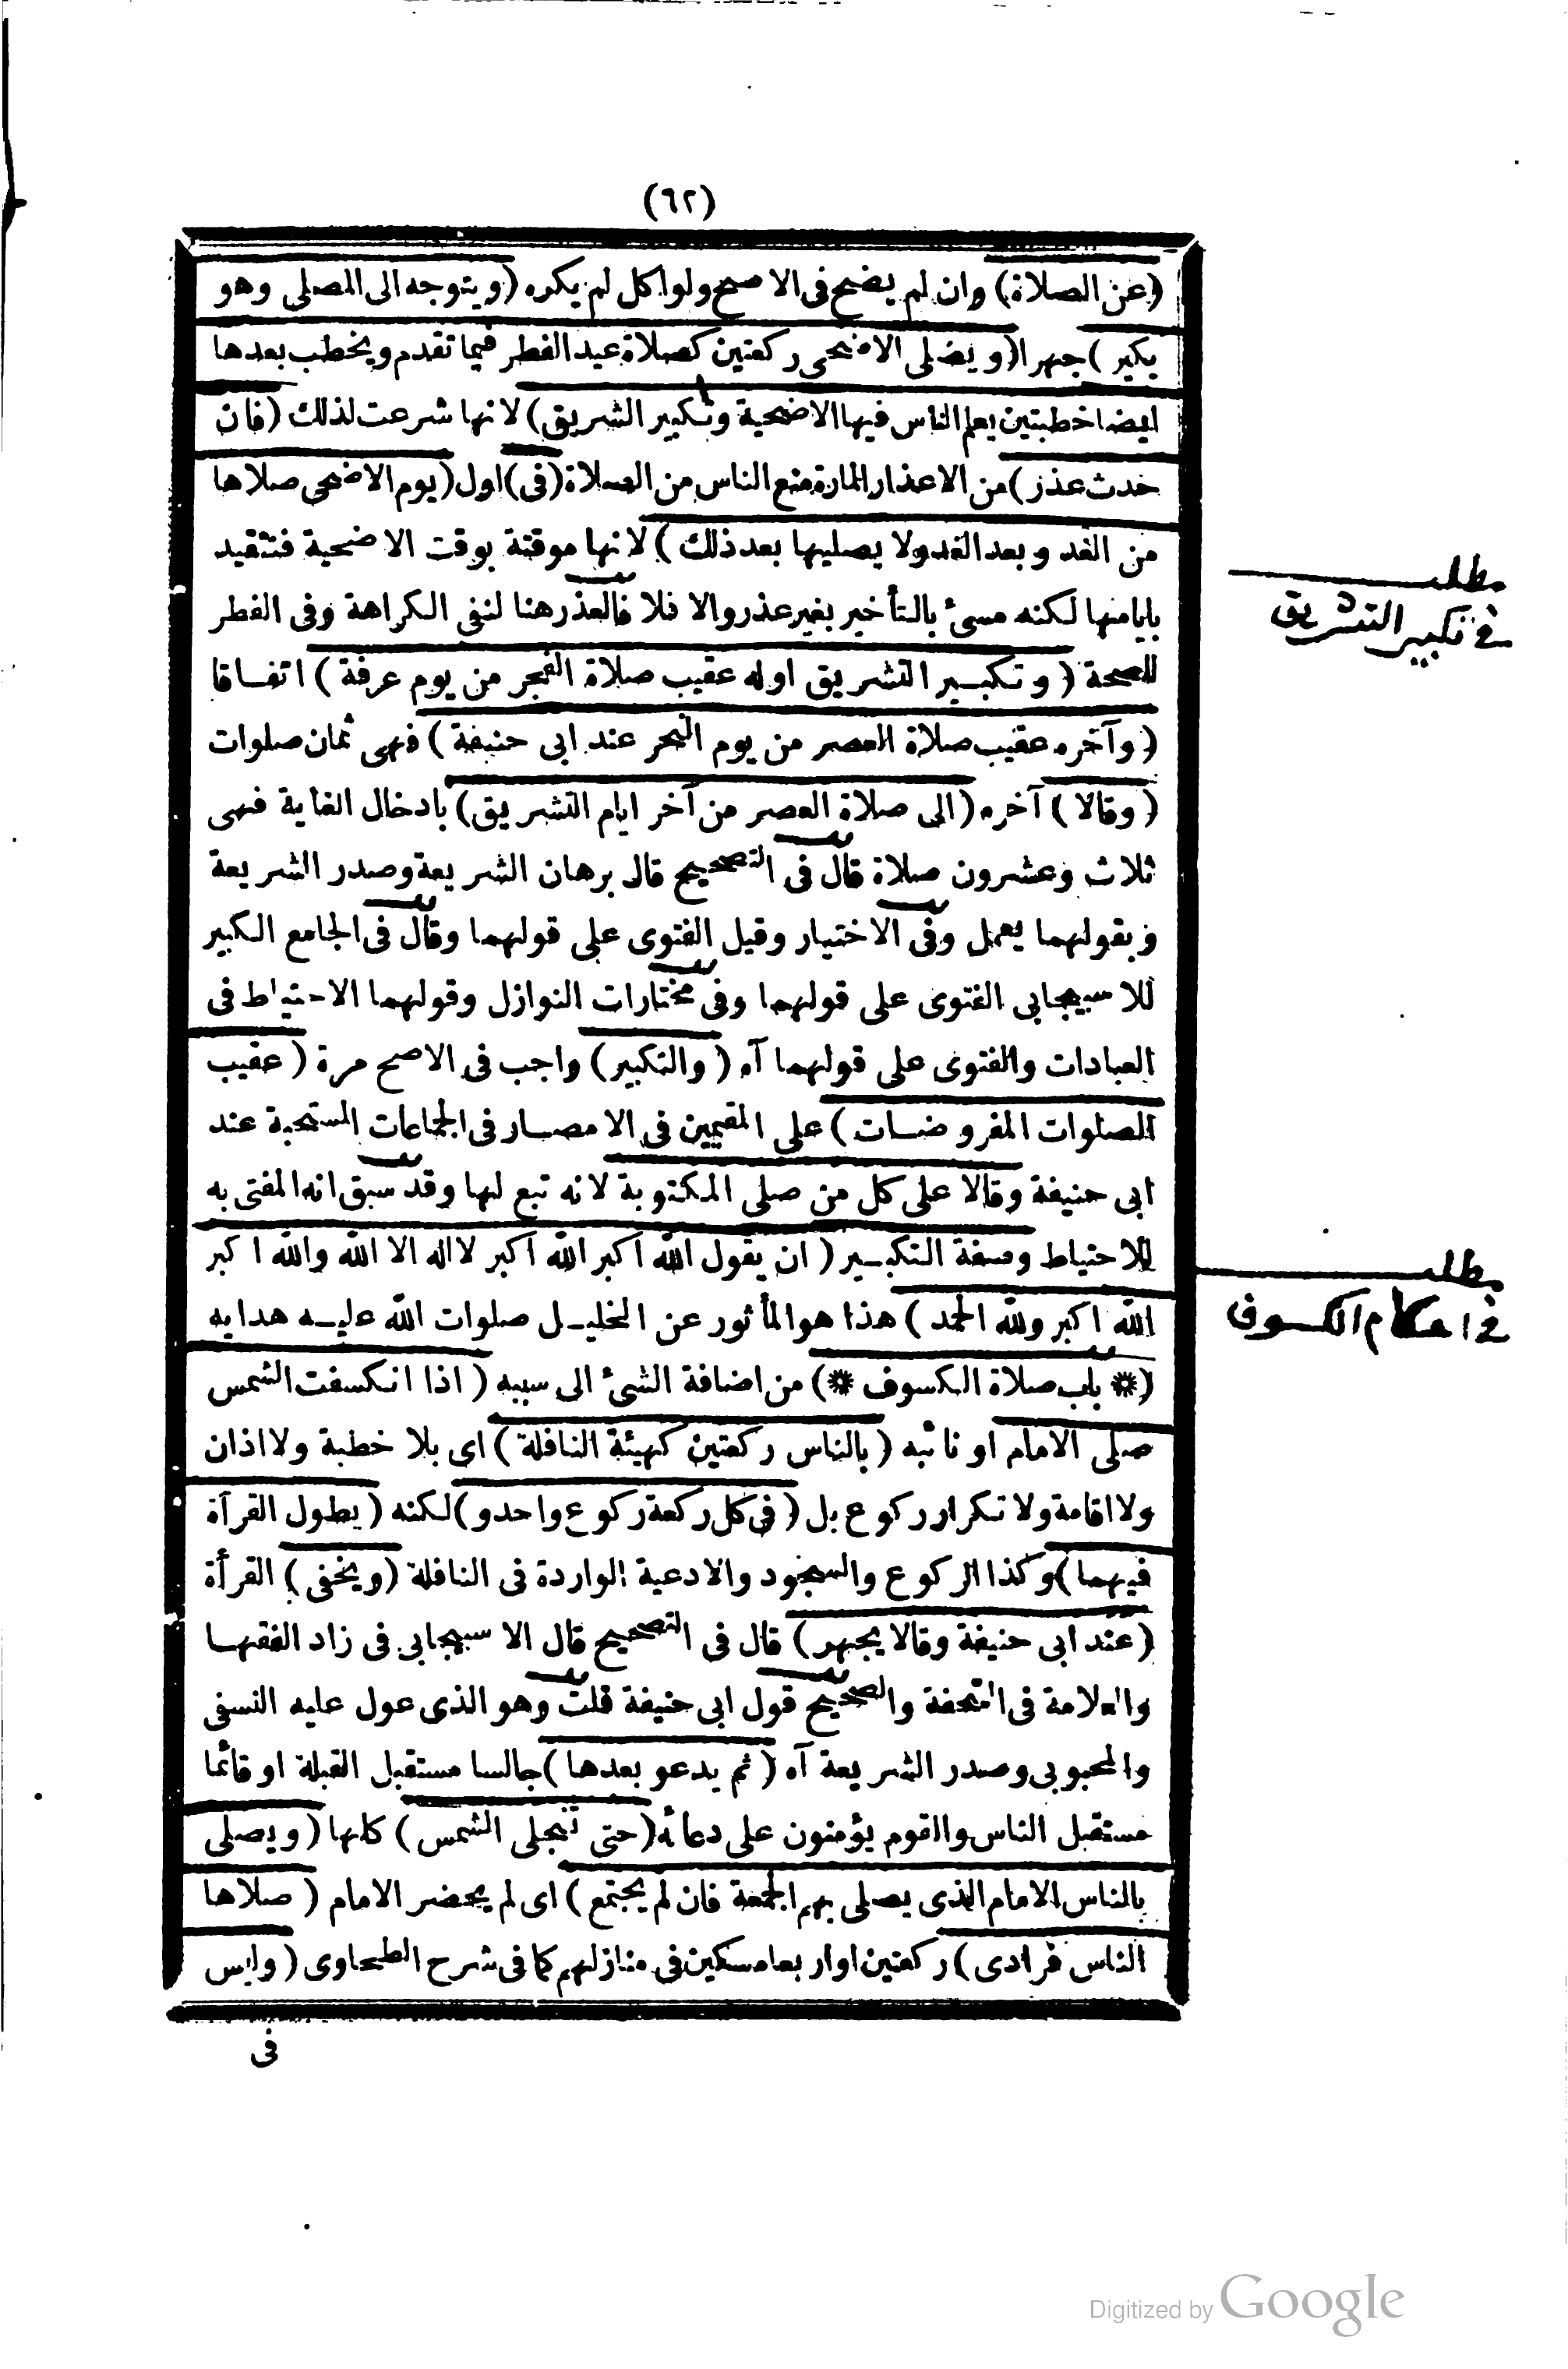 (٦٢)
(عن الصلاة) وان لم يضح فى الاصح ولو اكل لم يكره (ويتوجه الى المصلى وهو
يكبر) جهرا (ويصلى الاضحى ركعتين كصلاة عيد الفطر فيما تقدم ويخطب بعدها
ايضا خطبتين يعلم الناس فيها الاضحية وتكبير التشريق) لانها شرعت لذلك (فان
حدث عذر) من الاعذار المارة منع الناس من الصلاة (فى) اول (يوم الاضحى صلاها
من الغد وبعد الغد ولا يصليها بعد ذلك) لانها موقتة بوقت الاضحية فتتقيد
بايامها لكنه مسئ بالتأخير بغير عذر والا فلا فالعذر هنا لنفى الكراهة وفى الفطر
للصحة (وتكبير التشريق اوله عقيب صلاة الفجر من يوم عرفة) اتفاقا
(وآخره عقيب صلاة العصر من يوم النحر عند ابى حنيفة) فهى ثمان صلوات
(وقالا) آخره (الى صلاة العصر من آخر ايام التشريق) بادخال الغاية فهى
ثلاث وعشرون صلاة قال فى التصحيح قال برهان الشريعة وصدر الشريعة
وبقولهما يعمل وفى الاختيار وقيل الفتوى على قولهما وقال فى الجامع الكبير
للاسبيجابى الفتوى على قولهما وفى مختارات النوازل وقولهما الاحتياط فى
العبادات والفتوى على قولهما آه (والتكبير) واجب فى الاصح مرة (عقيب
الصلوات المفروضات) على المقيمين فى الامصار فى الجماعات المستحبة عند
ابى حنيفة وقالا على كل من صلى المكتوبة لانه تبع لها وقد سبق انه المفتى به
للاحتياط وصفة التكبير (ان يقول الله اكبر الله اكبر لا اله الا الله والله اكبر
الله اكبر ولله الحمد) هذا هو المأثور عن الخليل صلوات الله عليه هدايه
(* باب صلاة الكسوف *) من اضافة الشئ الى سببه (اذا انكسفت الشمس
صلى الامام او نائبه (بالناس ركعتين كهيئة النافلة) اى بلا خطبة ولا اذان
ولا اقامة ولا تكرار ركوع بل (فى كل ركعة ركوع واحد و) لكنه (يطول القرآة
فيهما) وكذا الركوع والسجود والادعية الواردة فى النافلة (ويخفى) القرأة
(عند ابى حنيفة وقالا يجهر) قال فى التصحيح قال الاسبيجابى فى زاد الفقها
والعلامة فى التحفة والصحيح قول ابى حنيفة قلت وهو الذى عول عليه النسفى
والمحبوبى وصدر الشريعة آه (ثم يدعو بعدها) جالسا مستقبل القبلة او قائما
مستقبل الناس والقوم يؤمنون على دعائه (حتى تنجلى الشمس) كلها (ويصلى
بالناس الامام الذى يصلى بهم الجمعة فان لم يجتمع) اى لم يحضر الامام (صلاها
الناس فرادى) ركعتين او اربعا مسكين فى منازلهم كما فى شرح الطحاوى (وليس
فى
مطلب
فى تكبير التشريق
مطلب
فى احكام الكسوف
Digitized by Google